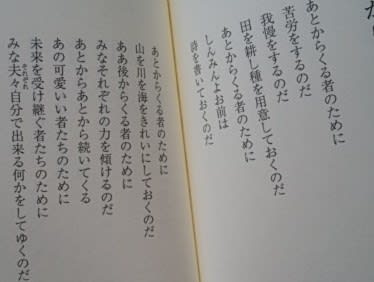 あとからくる者のために
苦労をするのだ
我慢をするのだ
田を耕し種を用意しておくのだ
あとからくる者のために
しんみんよお前は
詩を書いておくのだ
あとからくる者のために
山を川を海をきれいにしておくのだ
ああ後からくる者のために
みなそれぞれの力を傾けるのだ
あとからあとから続いてくる
あの可愛いい者たちのために
未来を受け継ぐ者たちのために
みな夫々自分で出来る何かをしてゆくのだ